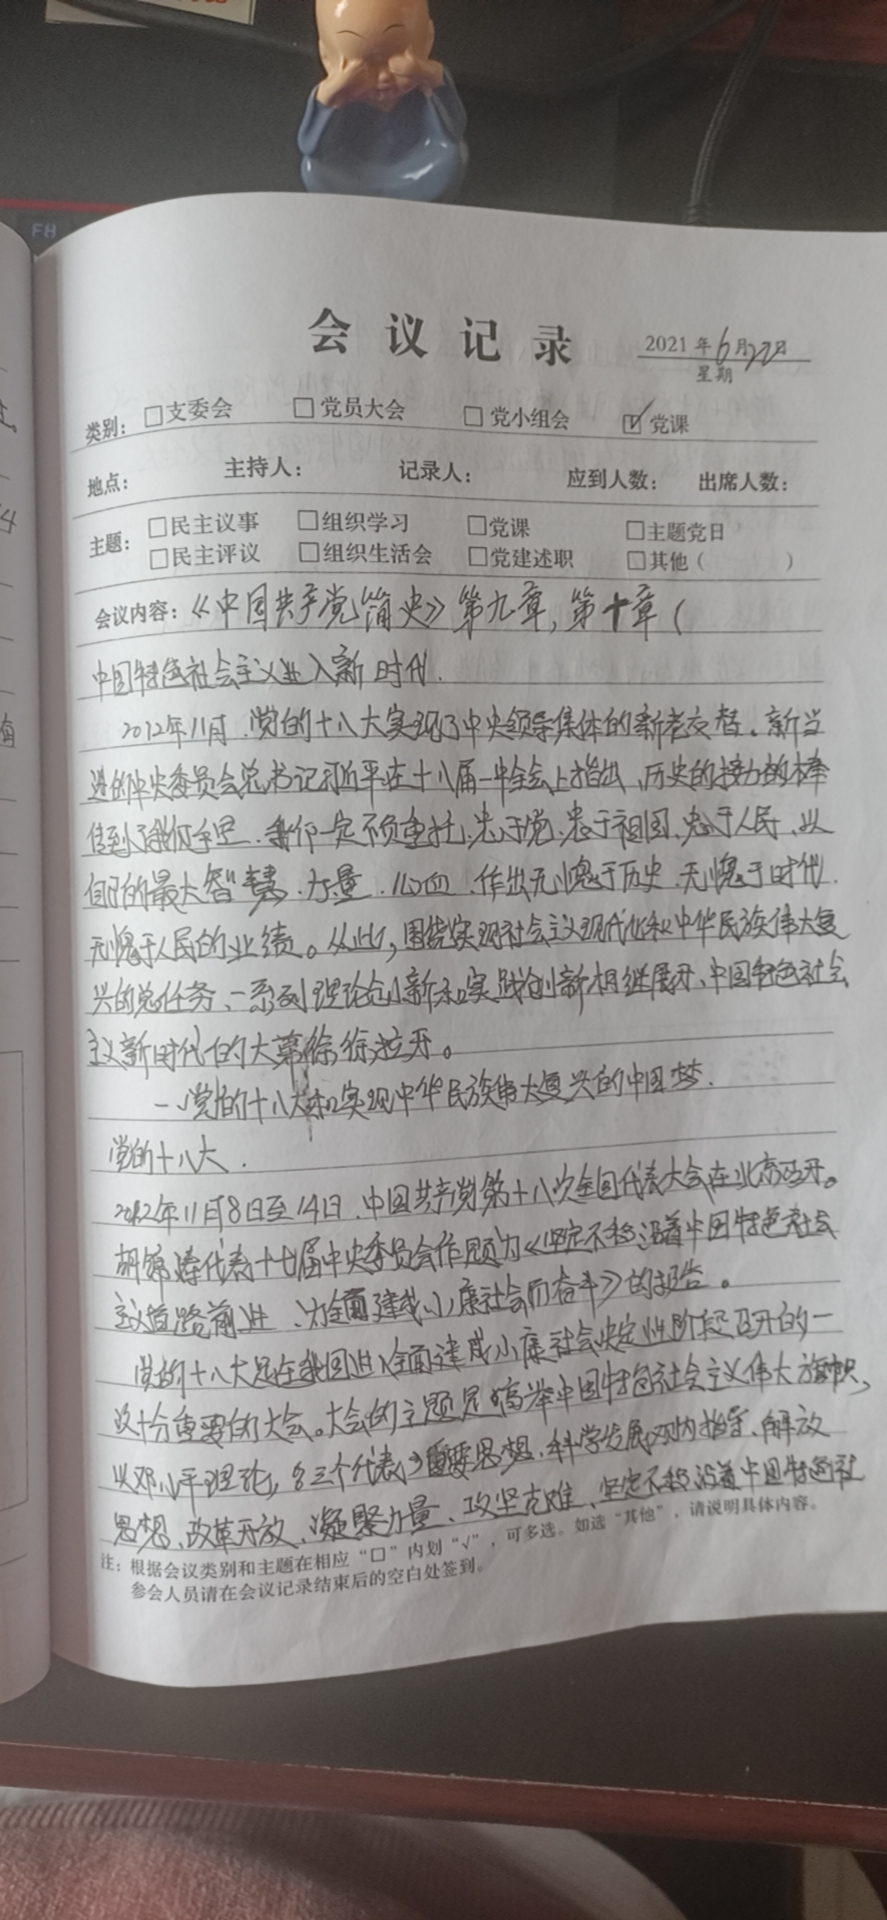 F8
会议记录
2021年6月22日
星期
类别：□支委会 □党员大会 □党小组会 ☑党课
地点： 主持人： 记录人： 应到人数： 出席人数：
主题：□民主议事 □组织学习 □党课 □主题党日
□民主评议 □组织生活会 □党建述职 □其他（ ）
会议内容：《中国共产党简史》第九章，第十章（
中国特色社会主义进入新时代.
2012年11月.党的十八大实现了中央领导集体的新老交替。新当
选的中央委员会总书记习近平在十八届一中全会上指出、历史的接力的棒
传到了我们手里.我们一定不负重托.忠于党.忠于祖国、忠于人民、以
们的最大智慧.力量.心血.作出无愧于历史.无愧于时代.
无愧于人民的业绩。从此，围绕实现社会主义现代化和中华民族伟大复
兴的总任务、一系列理论创新和实践创新相继展开、中国特色社会
主义新时代的大幕徐徐拉开。
一、党的十八大和实现中华民族伟大复兴的中国梦.
党的十八大.
2012年11月8日至14日.中国共产党第十八次全国代表大会在北京召开。
胡锦涛代表十七届中央委员会作题为《坚定不移沿着中国特色社会
主义道路前进、为全面建成小康社会而奋斗》的报告。
党的十八大是在我国进入全面建成小康社会决定性阶段召开的一
次十分重要的大会。大会的主题是：高举中国特色社会主义伟大旗帜，
以邓小平理论，三个代表重要思想.科学发展观为指导、解放
思想、改革开放、凝聚力量、攻坚克难、坚定不移沿着中国特色社
注：根据会议类别和主题在相应“□”内划“√”，可多选。如选“其他”，请说明具体内容。
参会人员请在会议记录结束后的空白处签到。